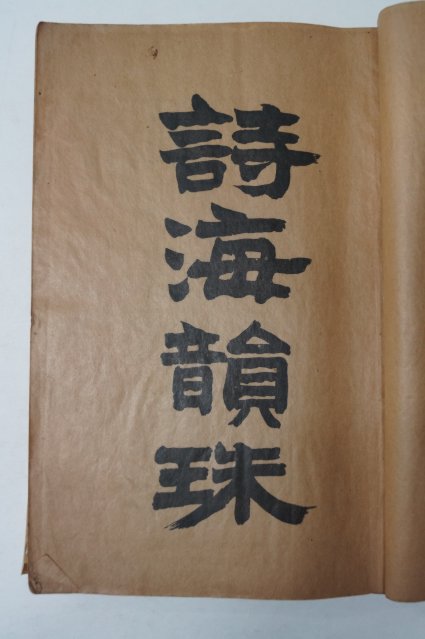 詩海韻珠